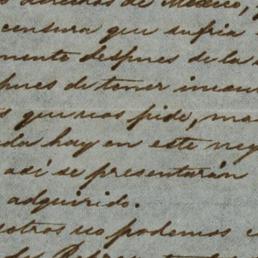 derechos de México,
censura que sufria
mente despues de la
pues de tener
s que nos pide, ma
da hay en este neg
asi se presentarán
adquirido.
sotros no podemos